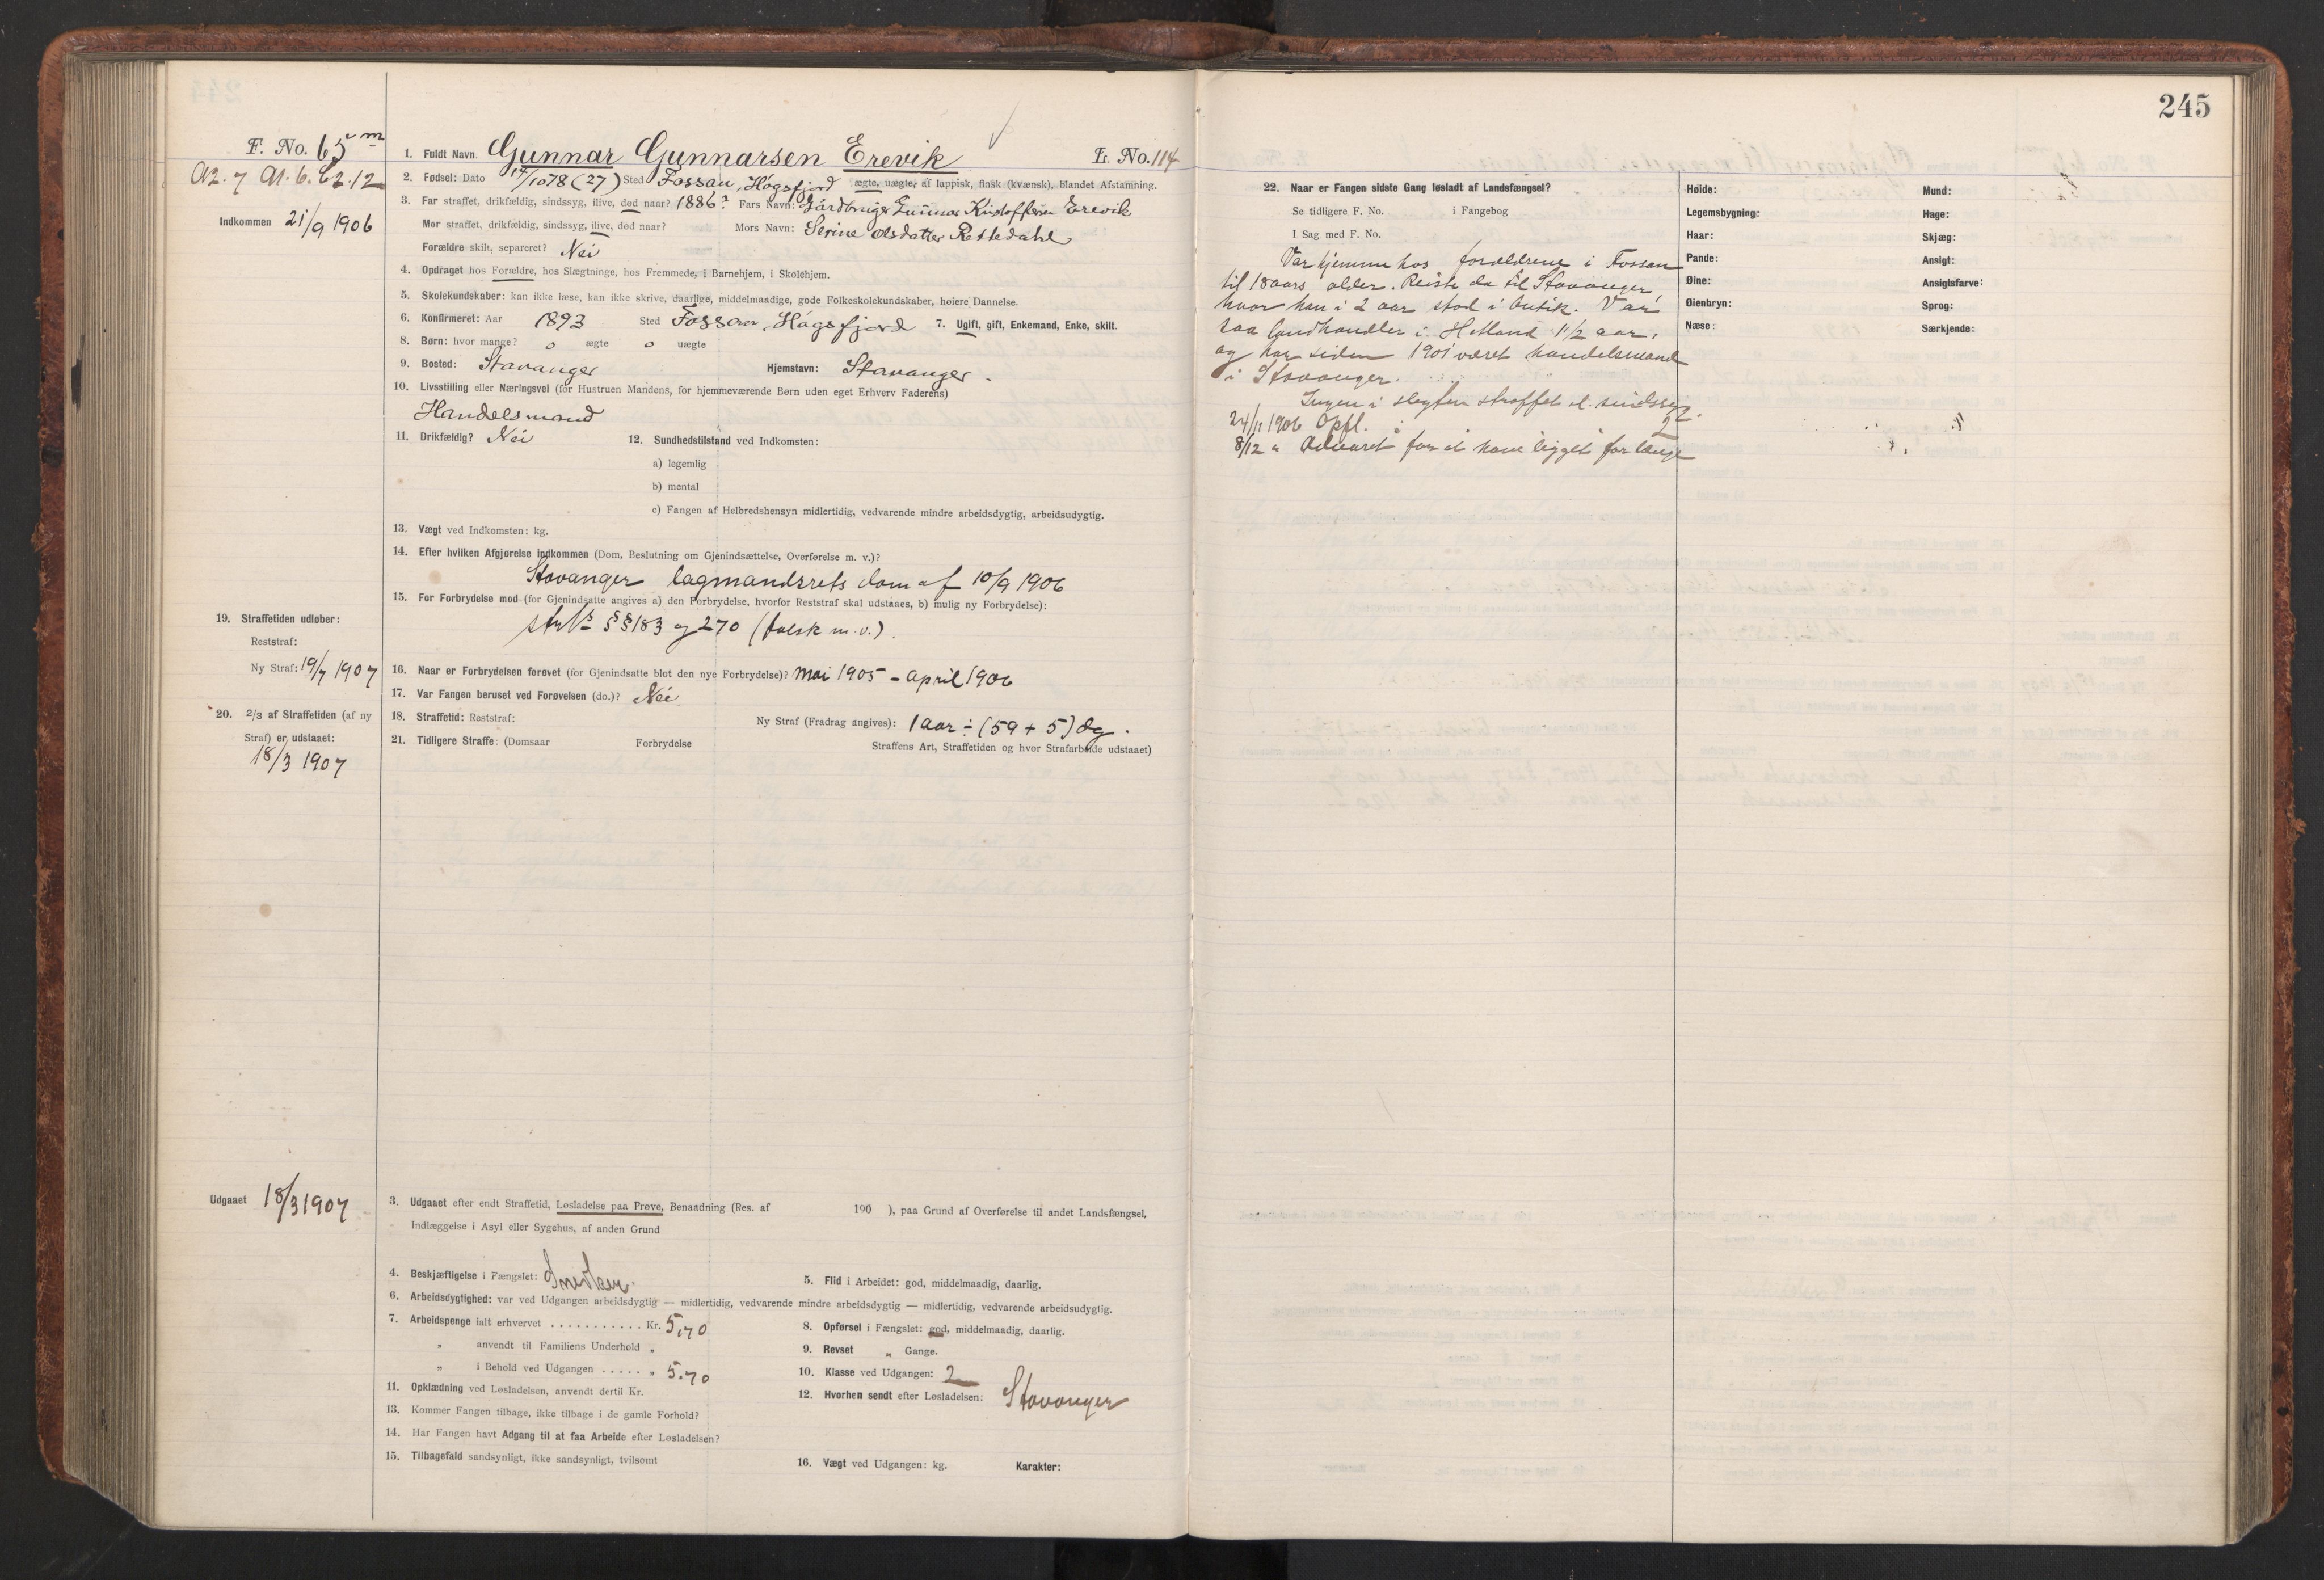 245
F. No. 65 m
A2. 7 A1. 6. C2. 12
Indkommen 21/9 1906
1. Fuldt Navn Gunnar Gunnarsen Erevik L. No. 114
2. Fødsel: Dato 17/10 78 (27) Sted Fossan, Høgsfjord ægte, uægte, af lappisk, finsk (kvænsk), blandet Afstamning.
3. Far straffet, drikfældig, sindssyg, ilive, død naar? 1886? Fars Navn: Gårdbruger Gunnar Kristoffersen Erevik
Mor straffet, drikfældig, sindssyg, ilive, død naar? Mors Navn: Serine Olsdatter Rettedahl
Forældre skilt, separeret? Nei
4. Opdraget hos Forældre, hos Slægtninge, hos Fremmede, i Barnehjem, i Skolehjem.
5. Skolekundskaber: kan ikke læse, kan ikke skrive, daarlige, middelmaadige, gode Folkeskolekundskaber, høiere Dannelse.
6. Konfirmeret: Aar 1893 Sted Fossan, Høgsfjord 7. Ugift, gift, Enkemand, Enke, skilt.
8. Børn: hvor mange? 0 ægte 0 uægte
9. Bosted: Stavanger Hjemstavn: Stavanger.
10. Livsstilling eller Næringsvei (for Hustruen Mandens, for hjemmeværende Børn uden eget Erhverv Faderens)
Handelsmand
11. Drikfældig? Nei 12. Sundhedstilstand ved Indkomsten:
a) legemlig
b) mental
c) Fangen af Helbredshensyn midlertidig, vedvarende mindre arbeidsdygtig, arbeidsudygtig.
13. Vægt ved Indkomsten: kg.
14. Efter hvilken Afgjørelse indkommen (Dom, Beslutning om Gjenindsættelse, Overførelse m. v.)?
Stavanger lagmandsrets dom af 10/9 1906
15. For Forbrydelse mod (for Gjenindsatte angives a) den Forbrydelse, hvorfor Reststraf skal udstaaes, b) mulig ny Forbrydelse):
§§ 183 og 270 (falsk m.v.).
19. Straffetiden udløber:
Reststraf:
Ny Straf: 19/7 1907
16. Naar er Forbrydelsen forøvet (for Gjenindsatte blot den nye Forbrydelse)? Mai 1905 - April 1906
17. Var Fangen beruset ved Forøvelsen (do.)? Nei
20. 2/3 af Straffetiden (af ny
Straf) er udstaaet:
18/3 1907
18. Straffetid: Reststraf: Ny Straf (Fradrag angives): 1 aar ÷ (59 + 5) dg.
21. Tidligere Straffe: (Domsaar Forbrydelse Straffens Art, Straffetiden og hvor Strafarbeide udstaaet)
Udgaaet 18/3 1907
3. Udgaaet efter endt Straffetid, Løsladelse paa Prøve, Benaadning (Res. af 190 ), paa Grund af Overførelse til andet Landsfængsel,
Indlæggelse i Asyl eller Sygehus, af anden Grund
4. Beskjæftigelse i Fængslet: Snedker. 5. Flid i Arbeidet: god, middelmaadig, daarlig.
6. Arbeidsdygtighed: var ved Udgangen arbeidsdygtig — midlertidig, vedvarende mindre arbeidsdygtig — midlertidig, vedvarende arbeidsudygtig.
7. Arbeidspenge ialt erhvervet . . . . . . . . . . . Kr. 5,70 8. Opførsel i Fængslet: god, middelmaadig, daarlig.
„ anvendt til Familiens Underhold „ 9. Revset „ Gange.
„ i Behold ved Udgangen . . . . . „ 5.70 10. Klasse ved Udgangen: 2
11. Opklædning ved Løsladelsen, anvendt dertil Kr. 12. Hvorhen sendt efter Løsladelsen: Stavanger
13. Kommer Fangen tilbage, ikke tilbage i de gamle Forhold?
14. Har Fangen havt Adgang til at faa Arbeide efter Løsladelsen?
15. Tilbagefald sandsynligt, ikke sandsynligt, tvilsomt 16. Vægt ved Udgangen: kg. Karakter:
22. Naar er Fangen sidste Gang løsladt af Landsfængsel?
Se tidligere F. No. i Fangebog
I Sag med F. No.
Var hjemme hos forældrene i Fossan
til 18 aars alder. Reiste da til Stavanger,
hvor han i 2 aar stod i butik. Var
saa landhandler i Hetland 1 1/2 aar,
og har siden 1901 været handelsmand
i Stavanger.
Ingen i slegten straffet el. sindssyg.
24/11 1906 Opfl. 2
8/12 " Advaret for at have ligget for længe
Høide:
Legemsbygning:
Haar:
Pande:
Øine:
Øienbryn:
Næse:
Mund:
Hage:
Skjæg:
Ansigt:
Ansigtsfarve:
Sprog:
Særkjende: